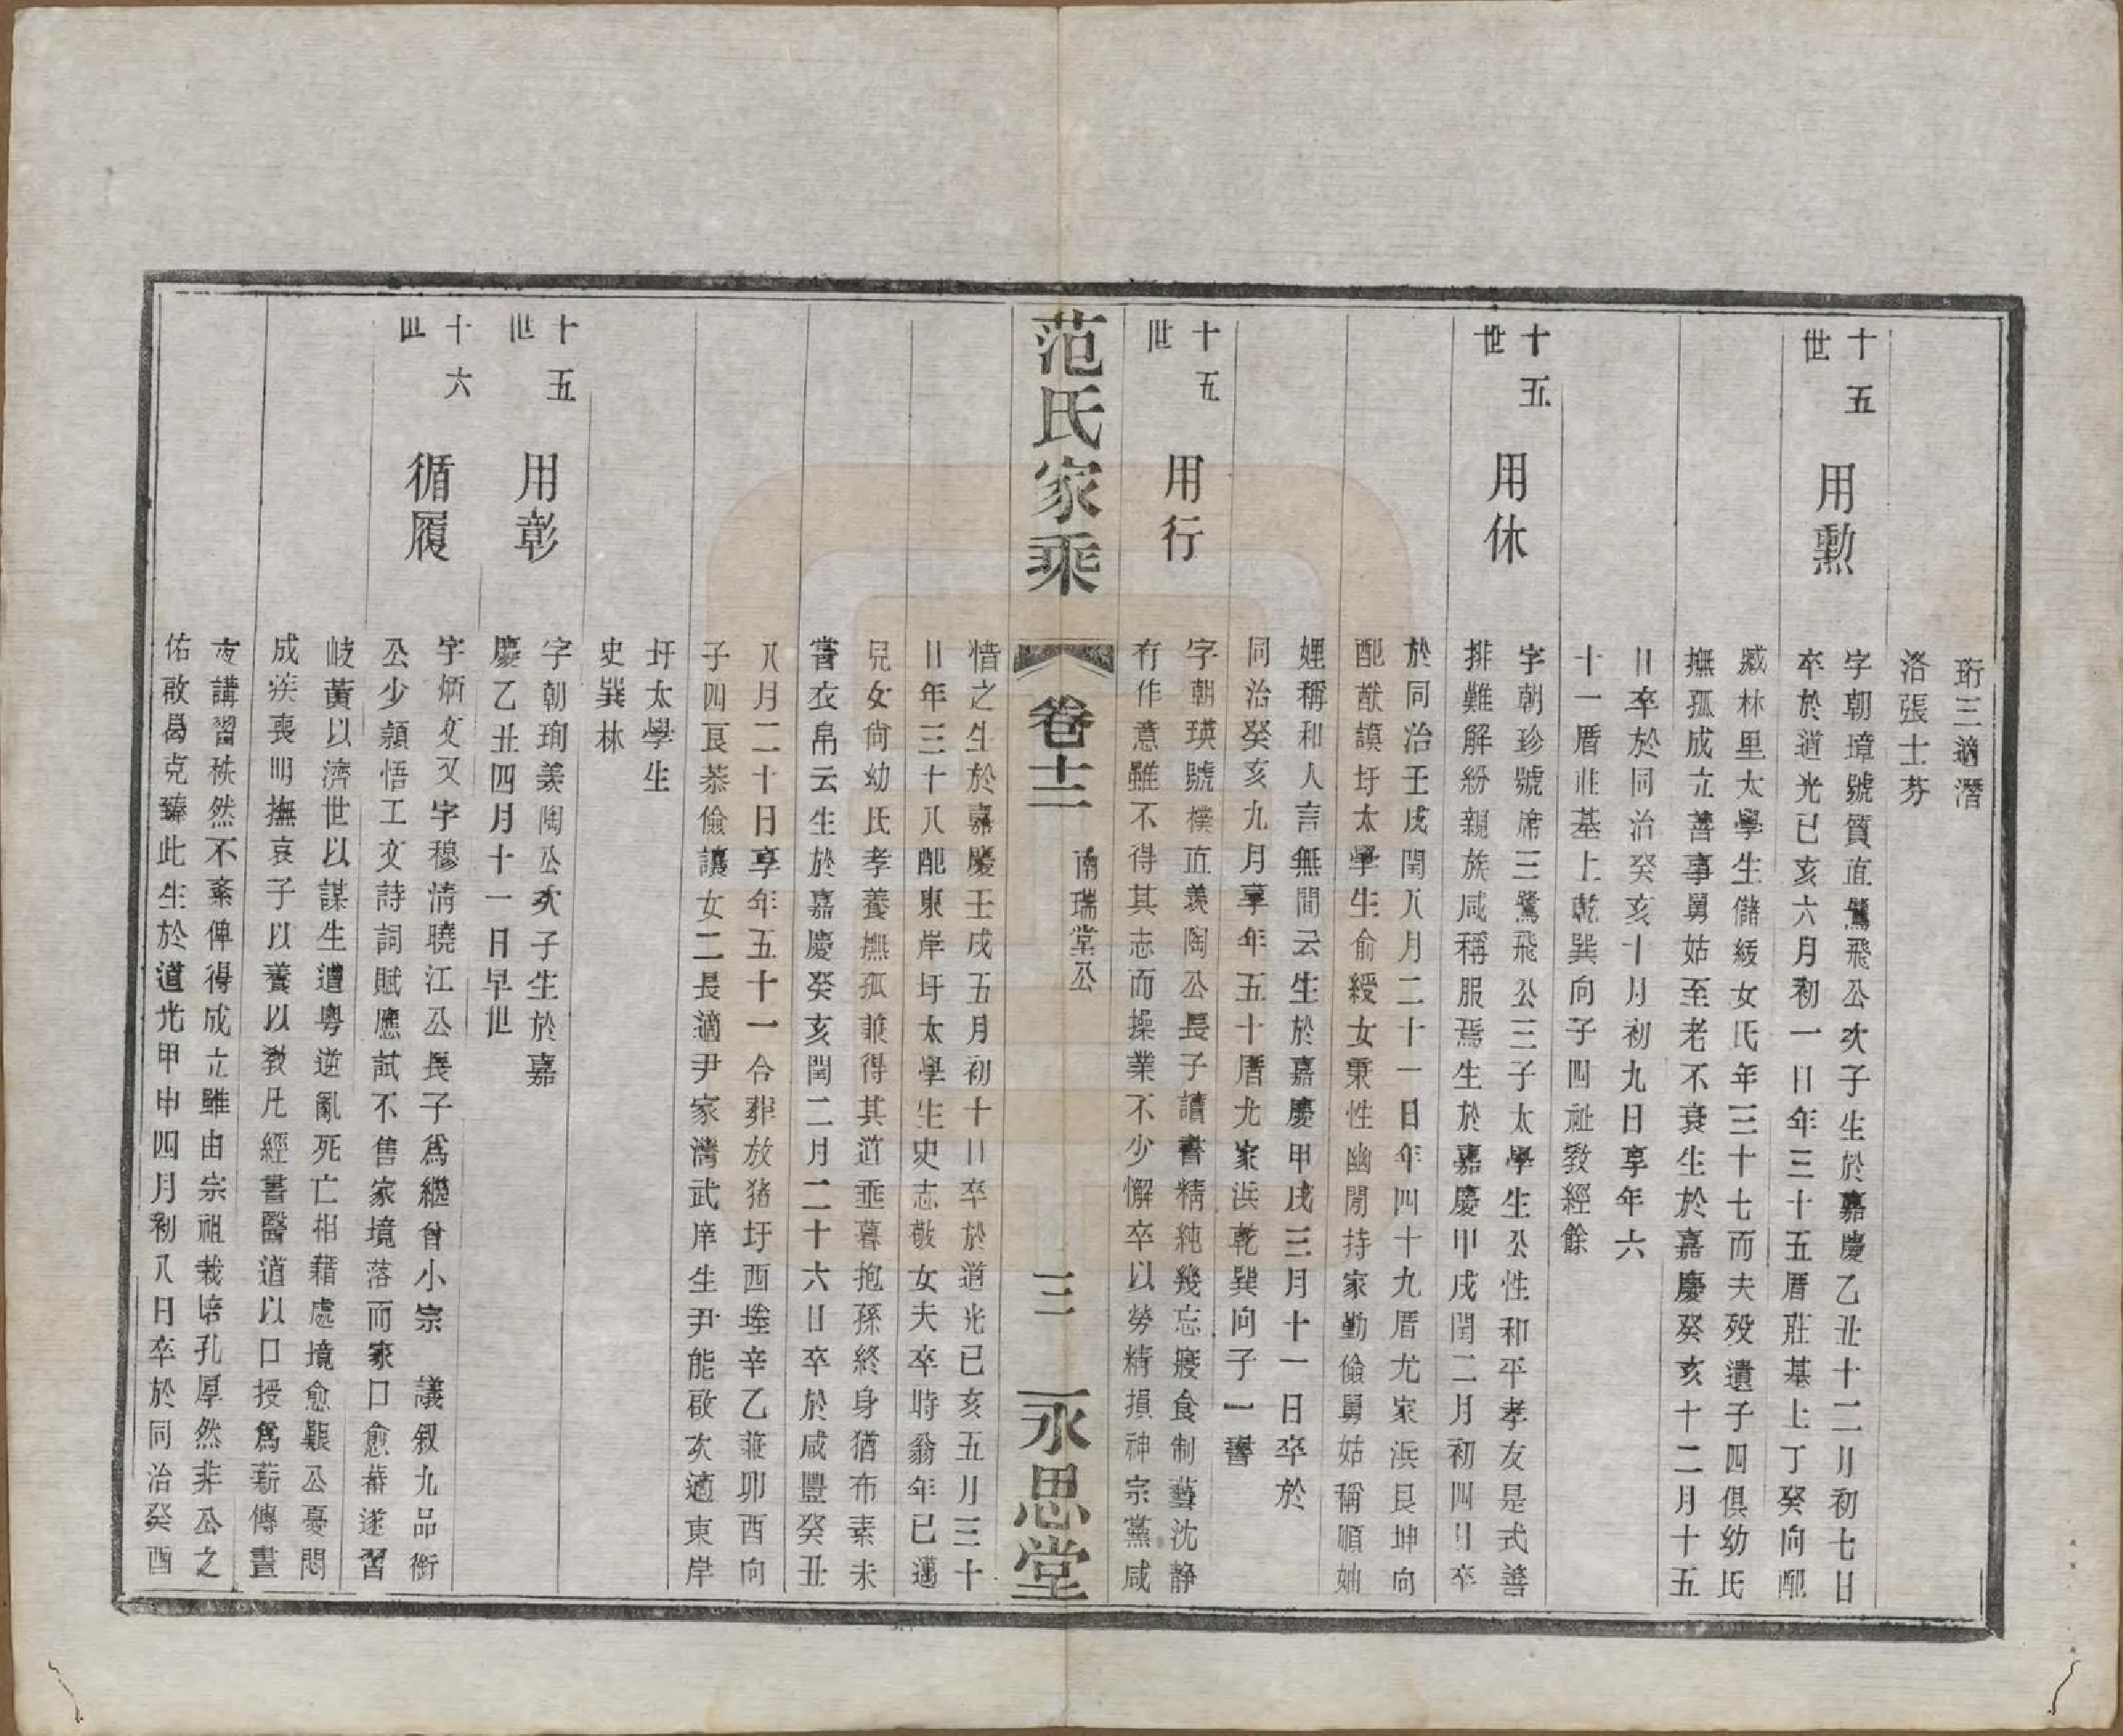 珩三適潛
洛張士芬
十五世
用勲
字朝璋號質直鷺飛公次子生於嘉慶乙丑十二月初七日
卒於道光已亥六月初一日年三十五厝莊基上丁癸向配
臧林里太學生儲綬女氏年三十七而夫殁遺子四俱幼氏
撫孤成立善事舅姑至老不衰生於嘉慶癸亥十二月十五
日卒於同治癸亥十月初九日享年六
十一厝莊基上乾巽向子四祉教經餘
十五世
用休
字朝珍號席三鷺飛公三子太學生公性和平孝友是式善
排難解紛親族咸稱服焉生於嘉慶甲戌閏二月初四日卒
於同治壬戌閏八月二十一日年四十九厝尤家浜艮坤向
配猷謨圩太學生俞綬女秉性幽閒持家勤儉舅姑稱順妯
娌稱和人言無間云生於嘉慶甲戌三月十一日卒於
同治癸亥九月享年五十厝尤家浜乾巽向子一譽
十五世
用行
字朝瑛號樸直羨陶公長子讀書精純幾忘寢食制藝沈静
有作意雖不得其志而操業不少懈卒以勞精損神宗黨咸
范氏家乘
卷十二
南瑞堂公
三
永思堂
惜之生於嘉慶壬戌五月初十日卒於道光已亥五月三十
日年三十八配東岸圩太學生史志敬女夫卒時翁年已邁
兒女尙幼氏孝養撫孤兼得其道垂暮抱孫終身猶布素未
嘗衣帛云生於嘉慶癸亥閏二月二十六日卒於咸豐癸丑
八月二十日享年五十一合葬放猪圩西塋辛乙兼卯酉向
子四艮恭儉讓女二長適尹家灣武庠生尹能啟次適東岸
圩太學生
史巽林
十五世
用彰
字朝珣羨陶公次子生於嘉
慶乙丑四月十一日早世
十六世
循履
字炳文又字穆淸曉江公長子爲繼曾小宗　議叙九品銜
公少穎悟工文詩詞賦應試不售家境落而家口愈蕃遂習
岐黃以濟世以謀生遭粵逆亂死亡相藉處境愈艱公憂悶
成疾喪明撫哀子以養以教凡經書醫道以口授爲薪傳晝
夜講習秩然不紊俾得成立雖由宗祖栽培孔厚然非公之
佑啟曷克臻此生於道光甲申四月初八日卒於同治癸酉